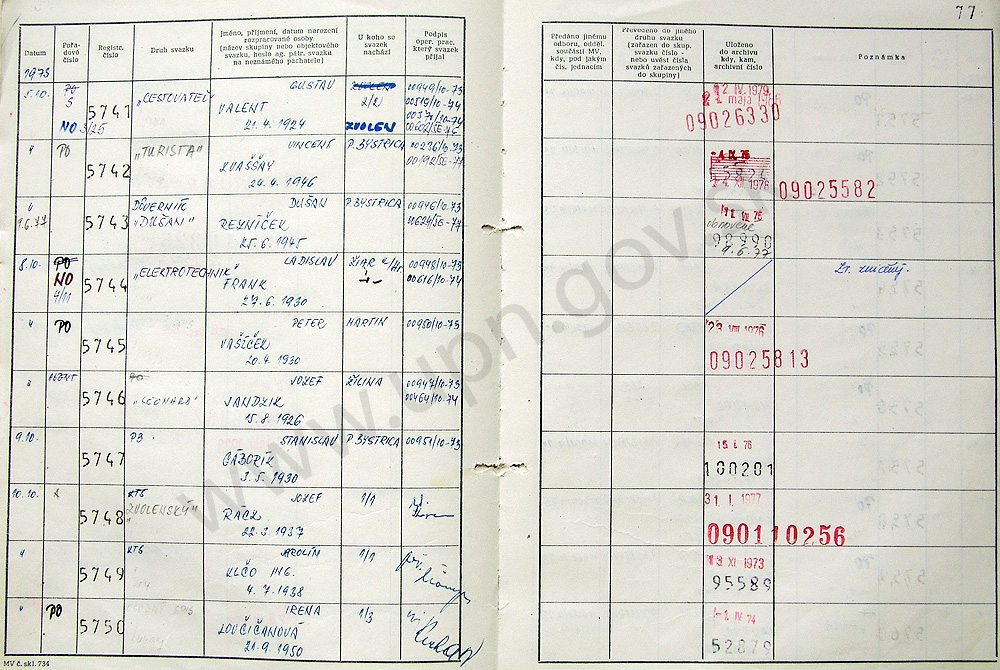 77
Datum
Pořa-
dové
číslo
Registr.
číslo
Druh svazku
Jméno, příjmení, datum narození
rozpracované osoby
(název skupiny nebo objektového
svazku, heslo ag. pátr. svazku
na neznámého pachatele)
U koho se
svazek
nachází
Podpis
oper. prac.
který svazek
přijal
Předáno jinému
odboru, odděl.
součásti MV,
kdy, pod jakým
čís. jednacím
Převedeno do jiného
druhu svazku
(zařazen do skup.
svazku číslo -
nebo uvést čísla
svazků zařazených
do skupiny)
Uloženo
do archivu
kdy, kam,
archivní číslo
Poznámka
1973
5.10.
PO
5
NO 3/25
5741
"CESTOVATEĽ"
GUSTAV
VALENT
21.4.1924
ZVOLEN
2/2)
ZVOLEN
00949/10-73
00519/10-74
2 IV. 1979
09026330
"
PO
5742
"TURISTA"
VINCENT
KVAŠŠAY
24.4.1946
P. BYSTRICA
00236/10-73
4. XII. 1978
09025582
"
9.6.77
5743
DÔVERNÍK
"DUŠAN"
DUŠAN
REZNÍČEK
25.6.1945
P. BYSTRICA
00946/10-73
obnovené
9.6.77
8.10.
PO
NO
4/11
5744
"ELEKTROTECHNIK"
LADISLAV
FRANK
27.6.1930
ŽIAR n/Hr.
00948/10-73
00616/10-74
"
PO
5745
PETER
VAŠÍČEK
20.4.1930
MARTIN
00950/10-73
23 VIII 1976
09025813
"
AGENT
5746
PO
"LEONARD"
JOZEF
JANDZIK
15.8.1926
ŽILINA
00947/10-73
00464/10-74
9.10.
5747
PB
STANISLAV
GÁBORÍK
3.5.1930
P. BYSTRICA
00951/10-73
15. I. 76
100201
10.10.
5748
KTS
"ZVOLENSKÝ"
JOZEF
RÁCZ
22.3.1937
1/1
31. I. 1977
090110256
"
5749
KTS
KAROLÍN
KLČO ING.
4.7.1938
1/1
13 XI 1973
95589
"
PO
5750
IRENA
LOVČIČANOVÁ
21.9.1950
1/3
1. IV. 74
52879
MV č. skl. 734
www.upn.gov.sk